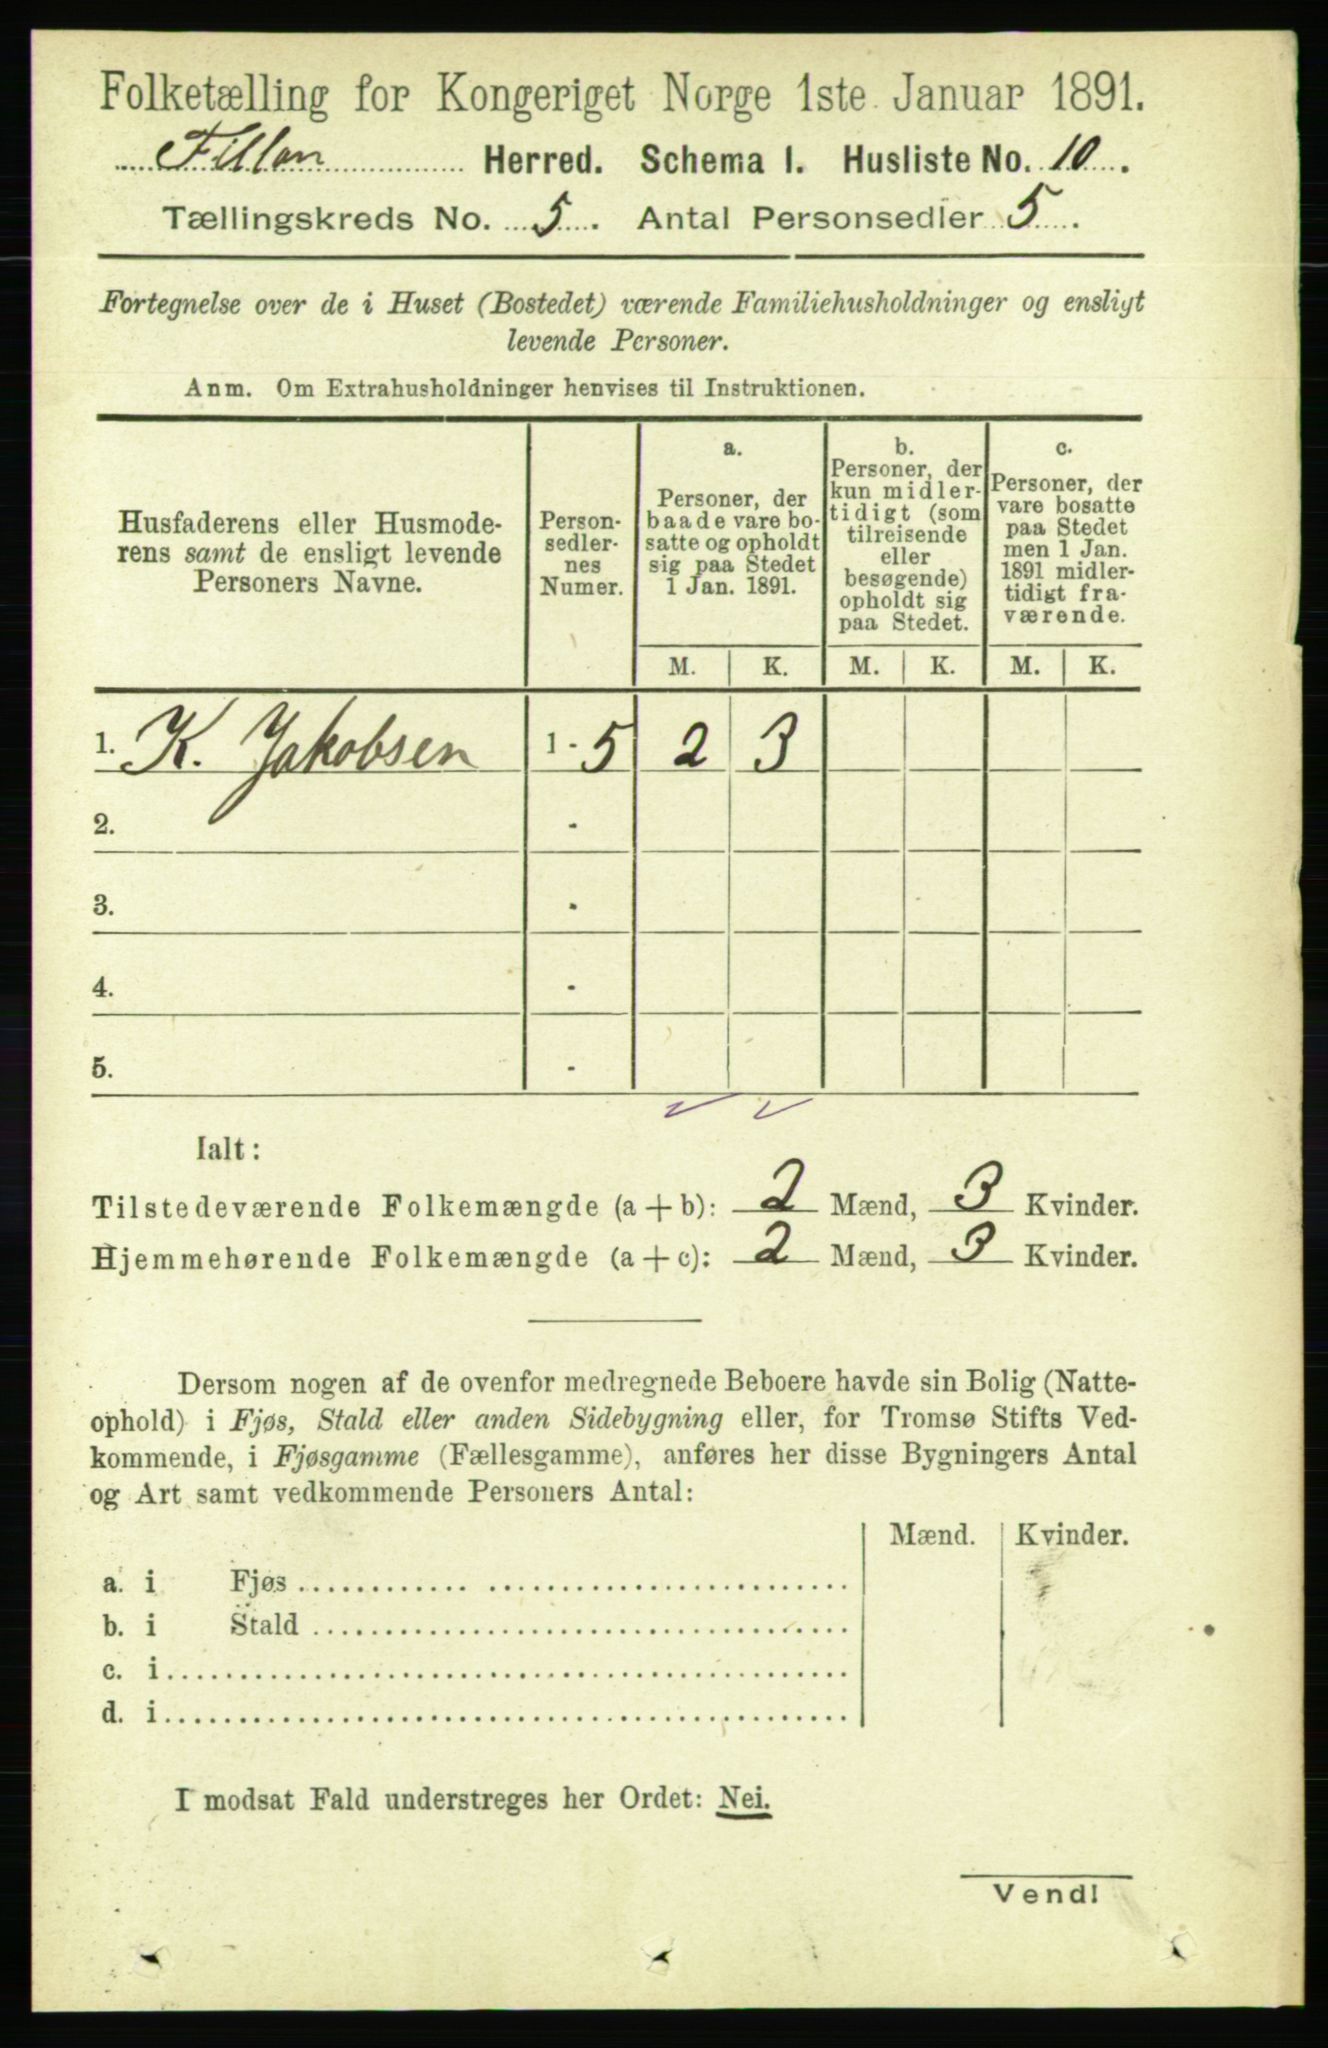 Folketælling for Kongeriget Norge 1ste Januar 1891.
Fillan Herred. Schema I. Husliste No. 10.
Tællingskreds No. 5. Antal Personsedler 5.
Fortegnelse over de i Huset (Bostedet) værende Familiehusholdninger og ensligt
levende Personer.
Anm. Om Extrahusholdninger henvises til Instruktionen.
Husfaderens eller Husmode-
rens samt de ensligt levende
Personers Navne.
Person-
sedler-
nes
Numer.
a.
Personer, der
baade vare bo-
satte og opholdt
sig paa Stedet
1 Jan. 1891.
b.
Personer, der
kun midler-
tidigt (som
tilreisende
eller
besøgende)
opholdt sig
paa Stedet.
c.
Personer, der
vare bosatte
paa Stedet
men 1 Jan.
1891 midler-
tidigt fra-
værende.
M. K. M. K. M. K.
1. K. Jakobsen 1 - 5 2 3
2. -
3. -
4. -
5. -
Ialt:
Tilstedeværende Folkemængde (a + b): 2 Mænd, 3 Kvinder.
Hjemmehørende Folkemængde (a + c): 2 Mænd, 3 Kvinder.
Dersom nogen af de ovenfor medregnede Beboere havde sin Bolig (Natte-
ophold) i Fjøs, Stald eller anden Sidebygning eller, for Tromsø Stifts Ved-
kommende, i Fjøsgamme (Fællesgamme), anføres her disse Bygningers Antal
og Art samt vedkommende Personers Antal:
Mænd. Kvinder.
a. i Fjøs
b. i Stald
c. i
d. i
I modsat Fald understreges her Ordet: Nei.
Vend!